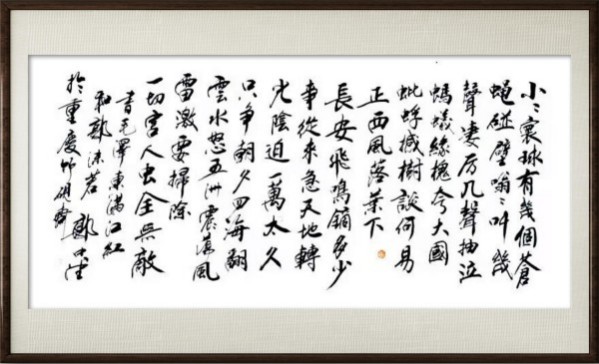 小〻寰球有幾個蒼
蠅碰壁嗡〻叫幾
聲凄厉几聲抽泣
螞蟻緣槐夸大國
蚍蜉撼樹談何易
正西風落葉下
長安飛鳴鏑多少
事從來急天地轉
光陰迫一萬太久
只争朝夕四海翻
雲水怒五洲震蕩風
雷激要掃除
一切害人虫全無敵
書毛澤東滿江紅
和郭沫若 郭
於重慶